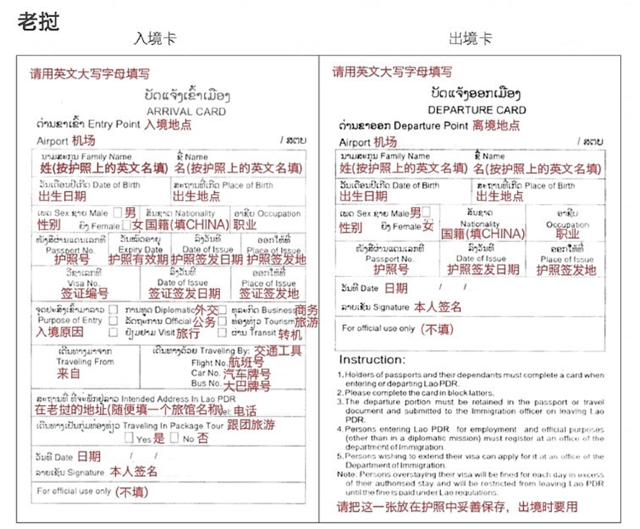 老挝
入境卡
请用英文大写字母填写
ບັດແຈ້ງເຂົ້າເມືອງ
ARRIVAL CARD
ດ່ານຂາເຂົ້າ Entry Point 入境地点
Airport 机场 / ສຕຍ
ນາມສະກຸນ Family Name ຊື່ Name
姓(按护照上的英文名填) 名(按护照上的英文名填)
ວັນເດືອນປີເກີດ Date of Birth ສະຖານທີ່ເກີດ Place of Birth
出生日期 出生地点
ເພດ Sex ຊາຍ Male 男 ສັນຊາດ Nationality ອາຊີບ Occupation
性别 ຍິງ Female 女 国籍(填CHINA) 职业
ໜັງສືຜ່ານແດນເລກທີ ວັນໝົດອາຍຸ ລົງວັນທີ ອອກໃຫ້ທີ່
Passport No. Expiry Date Date of Issue Place of Issue
护照号 护照有效期 护照签发日期 护照签发地
ວີຊາເລກທີ ລົງວັນທີ ອອກໃຫ້ທີ່
Visa No. Date of Issue Place of Issue
签证编号 签证签发日期 签证签发地
ຈຸດປະສົງເຂົ້າມາລາວ ການທູດ Diplomatic 外交 ທຸລະກິດ Business 商务
Purpose of Entry ລັດຖະການ Official 公务 ທ່ອງທ່ຽວ Tourism 旅游
入境原因 ຢ້ຽມຢາມ Visit 旅行 ຜ່ານ Transit 转机
ເດີນທາງມາຈາກ ເດີນທາງດ້ວຍ Traveling By: 交通工具
Traveling From Flight No. 航班号
来自 Car No. 汽车牌号
Bus No. 大巴牌号
ສະຖານທີ່ ທີ່ຈະພັກຢູ່ລາວ Intended Address In Lao PDR
在老挝的地址(随便填一个旅馆名称) Tel: 电话
ເດີນທາງເປັນກຸ່ມທ່ອງທ່ຽວ Traveling In Package Tour 跟团旅游
Yes 是 No 否
ວັນທີ Date 日期 / /
ລາຍເຊັນ Signature 本人签名
For official use only (不填)
出境卡
请用英文大写字母填写
ບັດແຈ້ງອອກເມືອງ
DEPARTURE CARD
ດ່ານຂາອອກ Departure Point 离境地点
Airport 机场 / ສຕຍ
ນາມສະກຸນ Family Name ຊື່ Name
姓(按护照上的英文填) 名(按护照上的英文名填)
ວັນເດືອນປີເກີດ Date of Birth ສະຖານທີ່ເກີດ Place of Birth
出生日期 出生地点
ເພດ Sex ຊາຍ Male 男 ສັນຊາດ ອາຊີບ
性别 ຍິງ Female 女 Nationality Occupation
国籍(填CHINA) 职业
ໜັງສືຜ່ານແດນເລກທີ ລົງວັນທີ ອອກໃຫ້ທີ່
Passport No. Date of Issue Place of Issue
护照号 护照签发日期 护照签发地
ວັນທີ Date 日期 / /
ລາຍເຊັນ Signature 本人签名
For official use only (不填)
Instruction:
1.Holders of passports and their dependants must complete a card when
entering or departing Lao PDR.
2.Please complete the card in block latters.
3.The departure portion must be retained in the passport or travel
document and submitted to the Immigration officer on leaving Lao
PDR.
4.Persons entering Lao PDR for employment and official purposes
(other than in a diplomatic mission) must register at an office of the
department of Immigration.
5.Persons wishing to extend their visa can apply for it at an office of the
Department of Immigration.
Note: Persons overstaying their visa will be fined for each day in excess
of their authorised stay and will be restricted from leaving Lao PDR
until the fine is paid under Lao regulations.
请把这一张放在护照中妥善保存，出境时要用